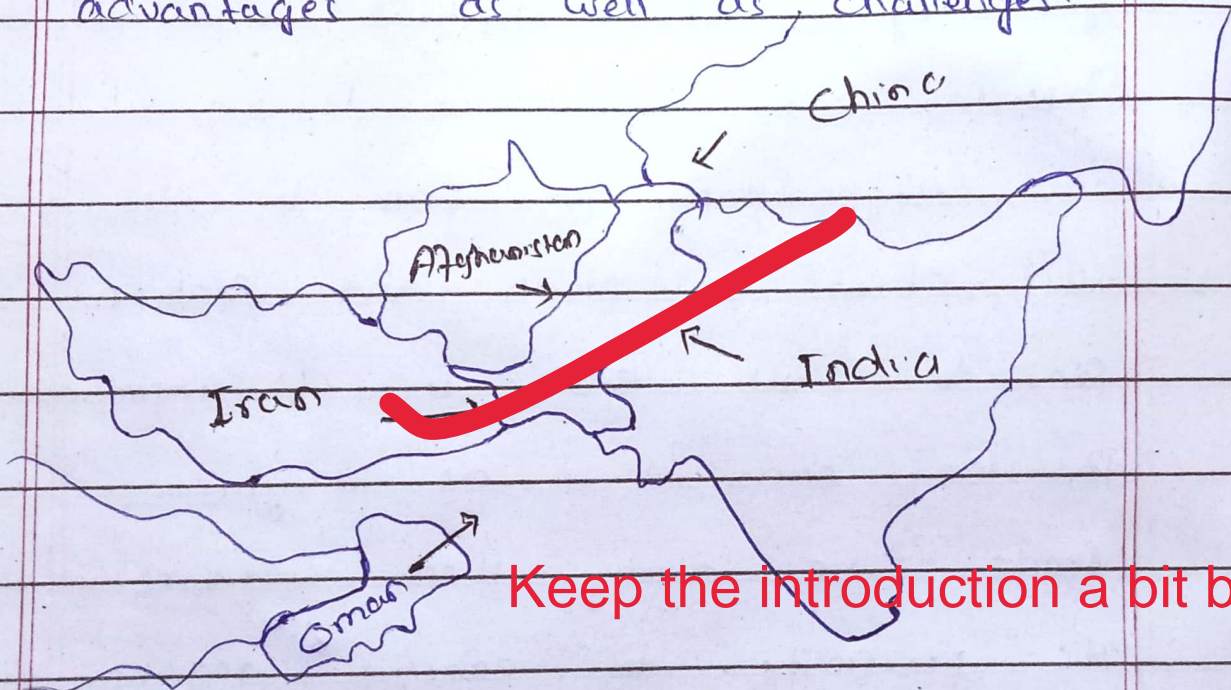 advantages as well as challenges.
China
Afghanistan
India
Iran
Oman
Keep the introduction a bit b